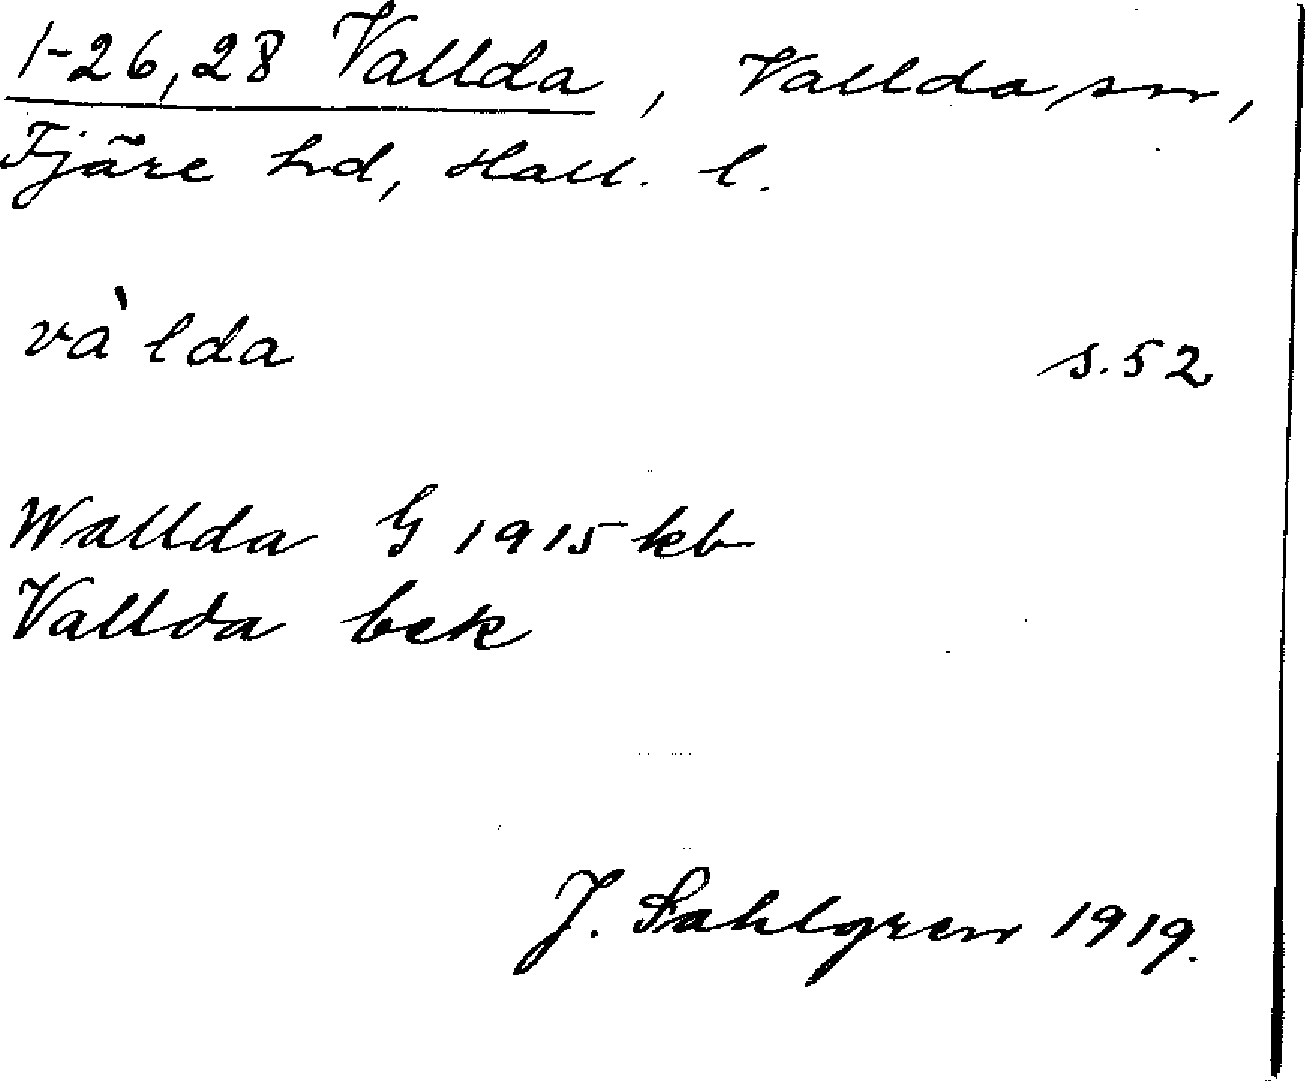 1-26,28 Vallda, Vallda sn,
Fjäre hd, Hall. l.
và lda s.52
Wallda G 1915 kb
Vallda bek
J. Sahlgren 1919.